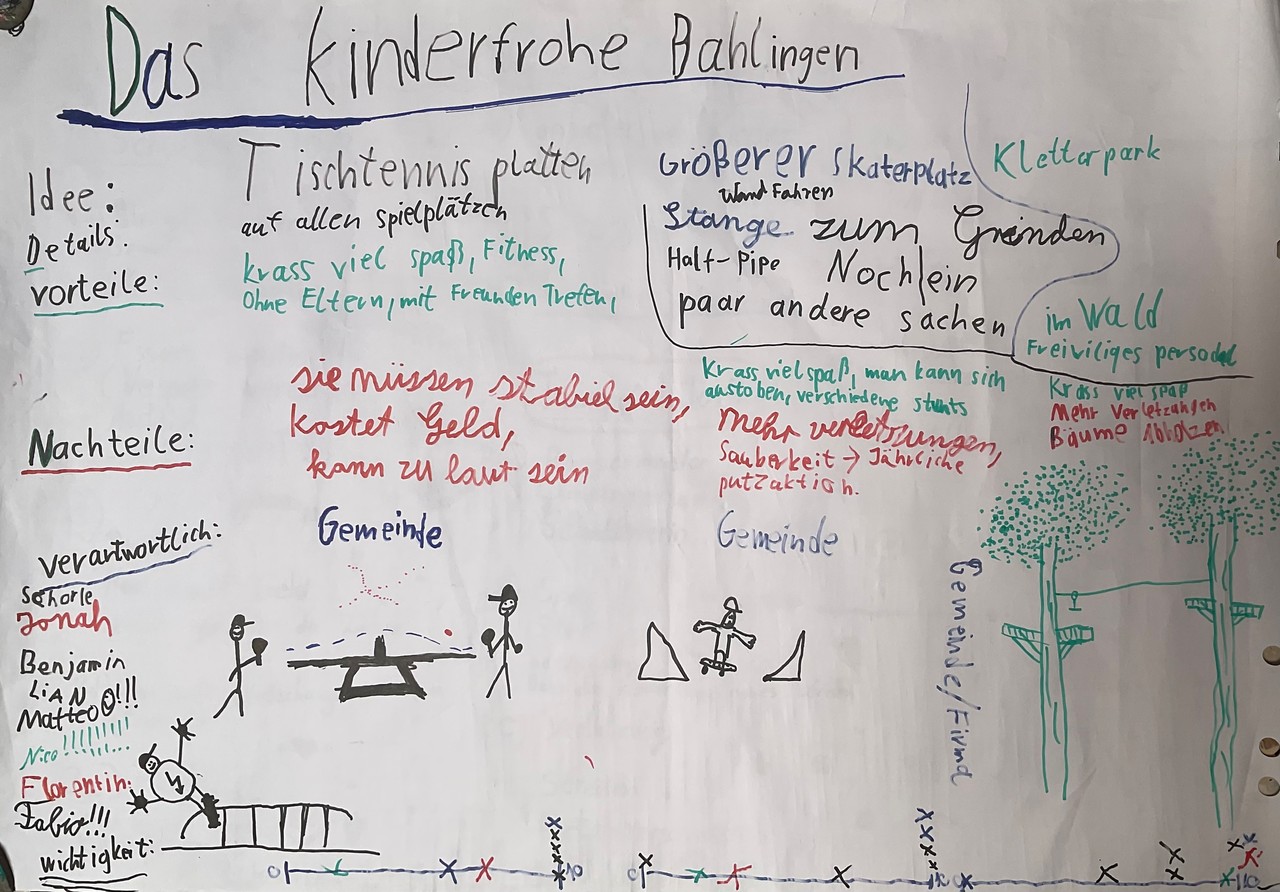 Das Kinderfrohe Bahlingen
Idee:
Details:
Vorteile:
Nachteile:
verantwortlich:
Tischtennis platten
auf allen spielplätzen
krass viel spaß, Fitness,
Ohne Eltern, mit Freunden Trefen,
sie müssen stabiel sein,
kostet Geld,
kann zu laut sein
Gemeinde
Größerer skaterplatz
Wand Fahren
Stange zum Greinden
Half-Pipe Noch ein
paar andere sachen
Krass viel spaß, man kann sich
austoben, verschiedene stunts
Mehr verletzungen,
Sauberkeit → Jährliche
putzaktion.
Gemeinde
Kletterpark
im Wald
Freiwiliges persodal
Krass viel spaß
Mehr Verletzungen
Bäume Abholzen
Gemeinde/Firma
Schorle
Jonah
Benjamin
LiAN
Matteo!!!
Nico!!!!!!!!!...
Florentin:
Fabio!!!
wichtigkeit:
0 10
0 10
10